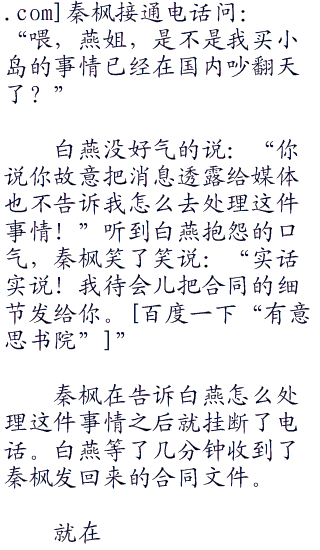 .com]秦枫接通电话问：
“喂，燕姐，是不是我买小
岛的事情已经在国内吵翻天
了？”
白燕没好气的说：“你
说你故意把消息透露给媒体
也不告诉我怎么去处理这件
事情！”听到白燕抱怨的口
气，秦枫笑了笑说：“实话
实说！我待会儿把合同的细
节发给你。[百度一下“有意
思书院”]”
秦枫在告诉白燕怎么处
理这件事情之后就挂断了电
话。白燕等了几分钟收到了
秦枫发回来的合同文件。
就在